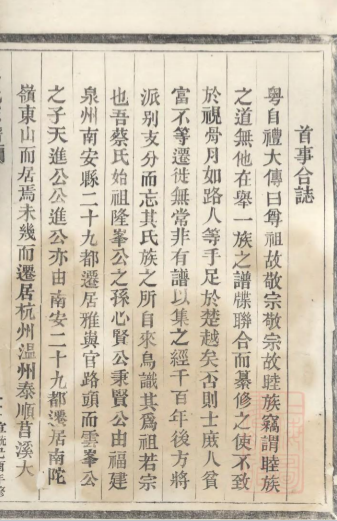 首事合誌
粤自禮大傳曰尊祖故敬宗敬宗故睦族竊謂睦族
之道無他在舉一族之譜牒聯合而纂修之使不致
於視骨月如路人等手足於楚越矣否則士庶人貧
富不等遷徙無常非有譜以集之經千百年後方將
派别支分而忘其氏族之所自來烏識其爲祖若宗
也吾蔡氏始祖隆峯公之孫心賢公秉賢公由福建
泉州南安縣二十九都遷居雅與官路頭而雲峯公
之子天進公公進公亦由南安二十九都遷居南陀
嶺東山而居焉未幾而遷居杭州溫州泰順莒溪大